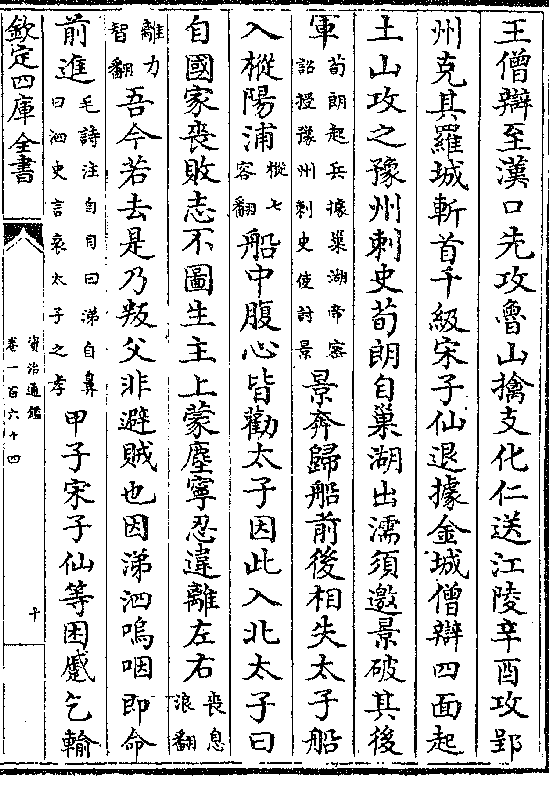 王僧辯至漢口先攻魯山擒支化仁送江陵辛酉攻郢
州克其羅城斬首千級宋子仙退據金城僧辯四面起
土山攻之豫州刺史荀朗自巢湖出濡須邀景破其後
軍荀朗起兵據巢湖帝密詔授豫州刺史使討景景奔歸船前後相失太子船
入樅陽浦樅七容翻船中腹心皆勸太子因此入北太子曰
自國家喪敗志不圖生主上蒙塵寧忍違離左右喪息浪翻
離力智翻吾今若去是乃叛父非避賊也因涕泗嗚咽即命
前進毛詩注自目曰涕自鼻曰泗史言哀太子之孝甲子宋子仙等困蹙乞輸
欽定四庫全書
資治通鑑
卷一百六十四
十